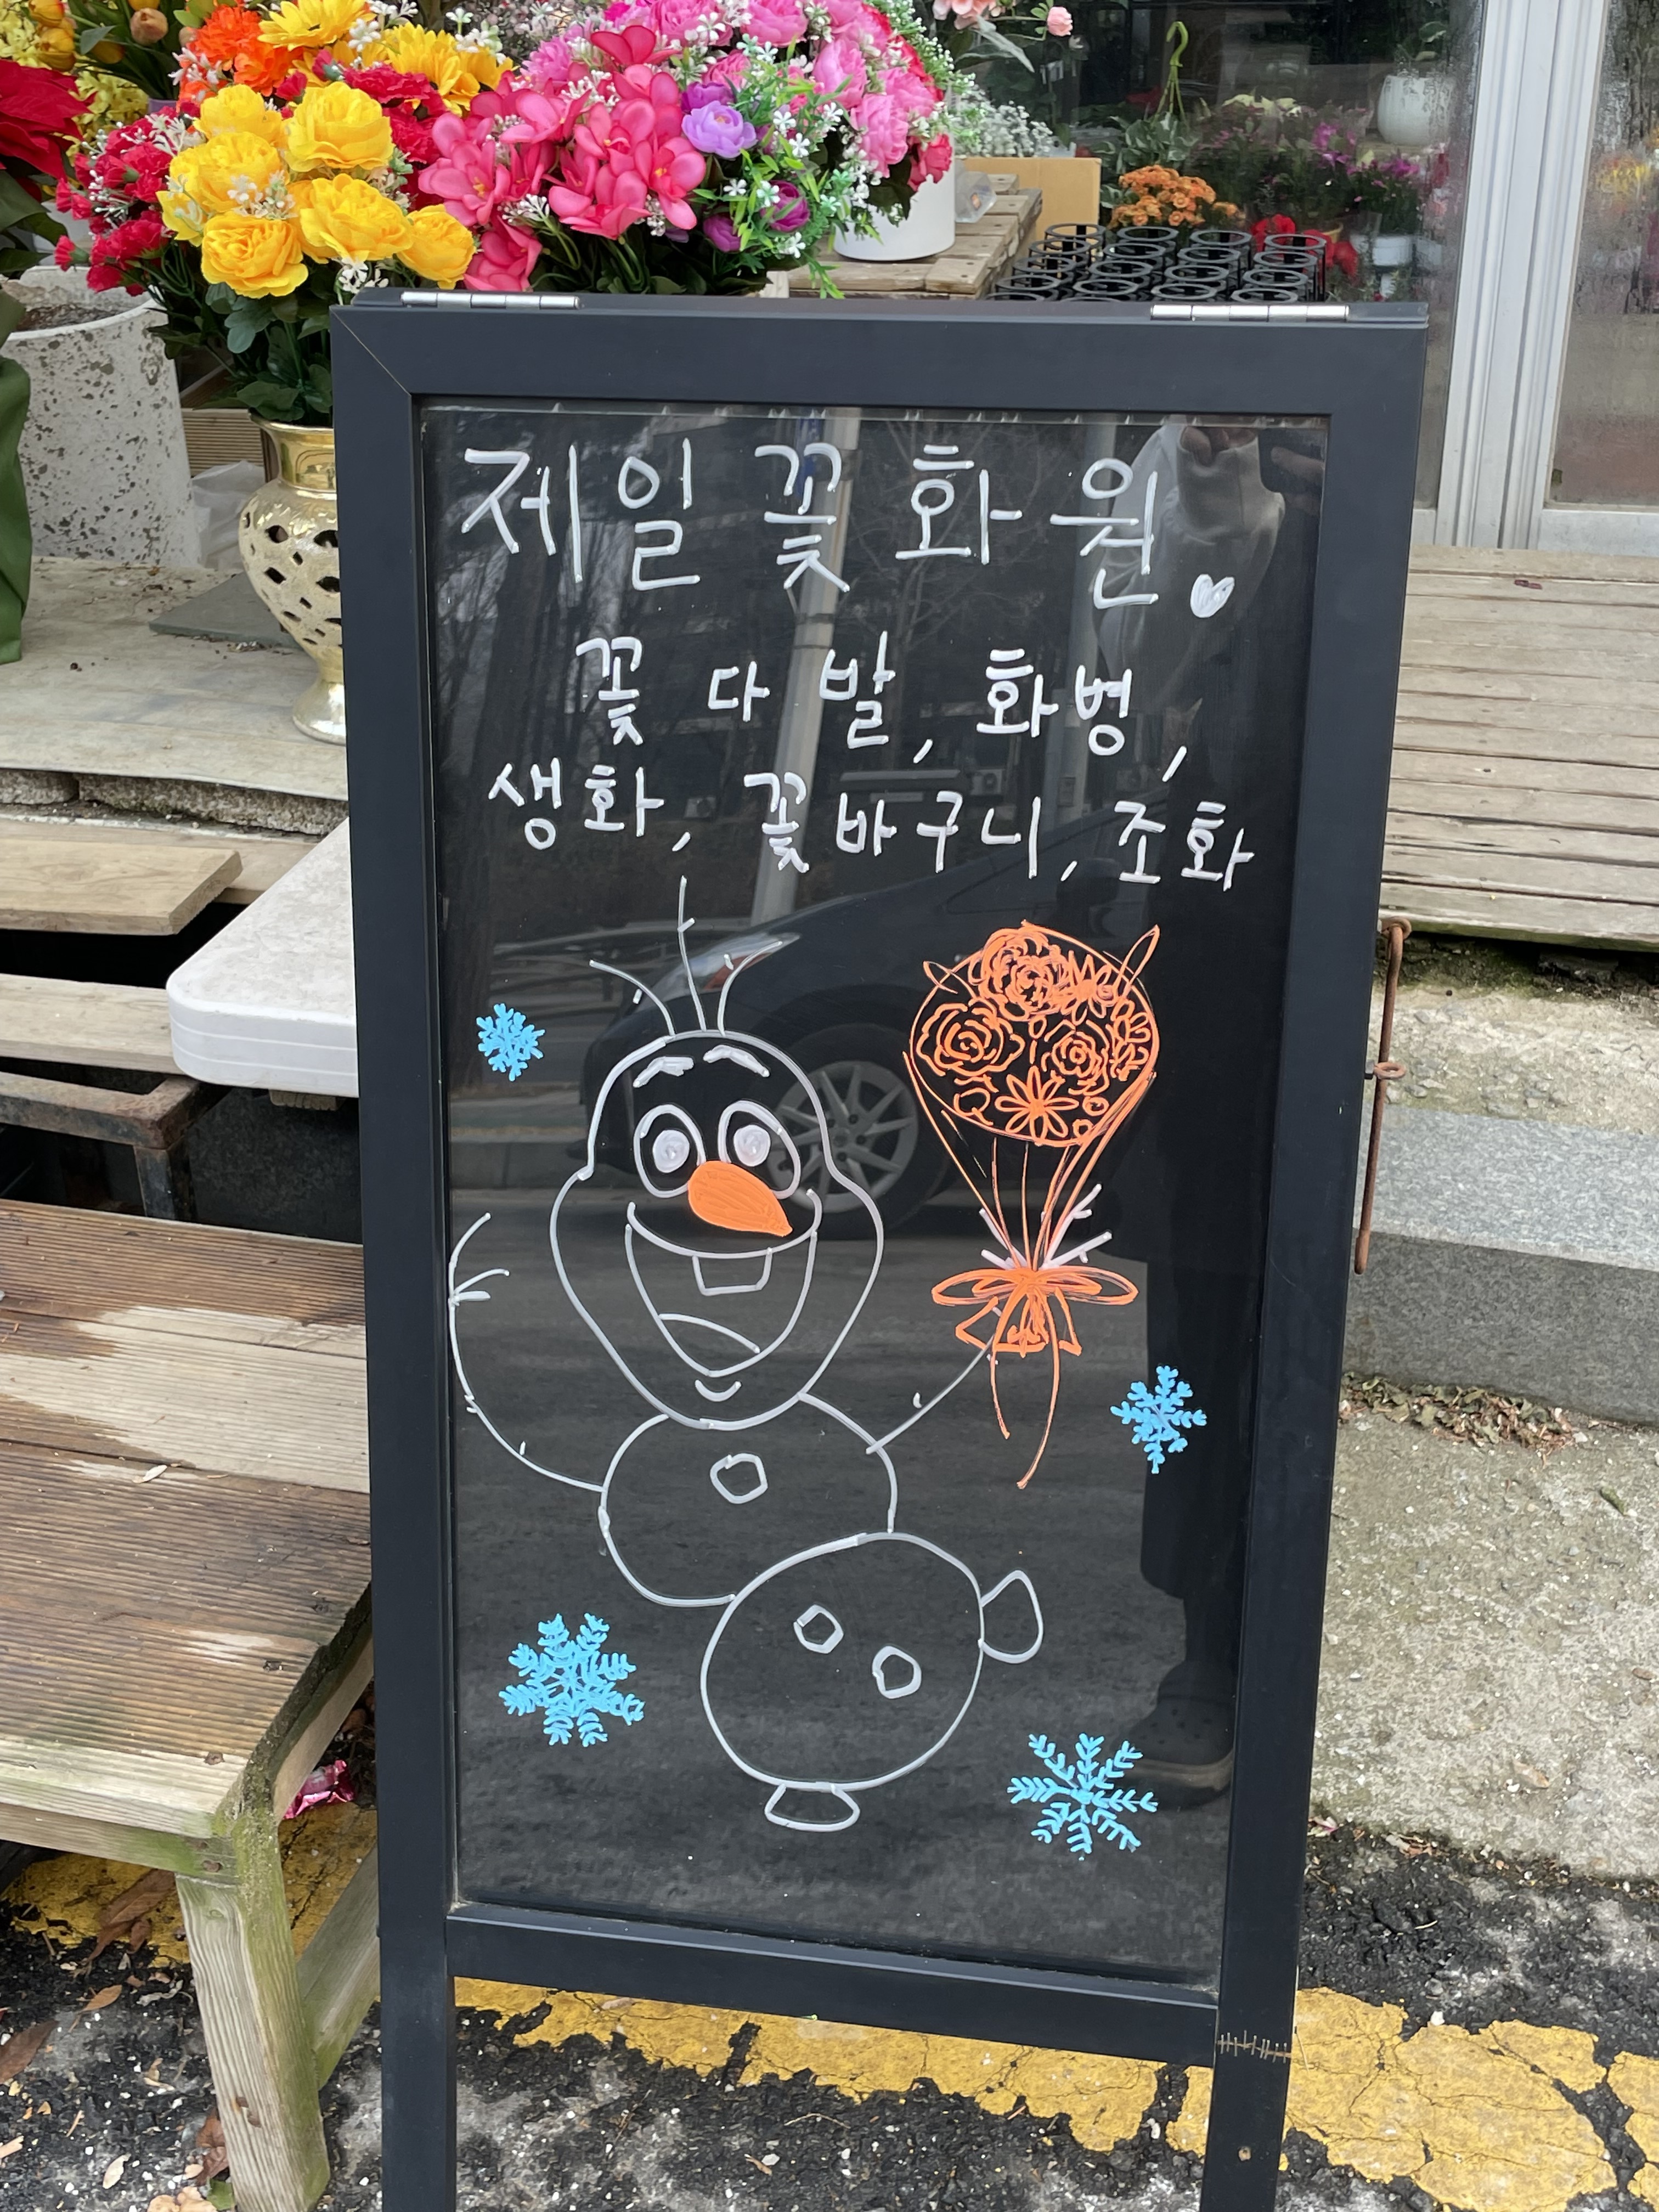 제일꽃화원
꽃다발, 화병,
생화, 꽃바구니, 조화